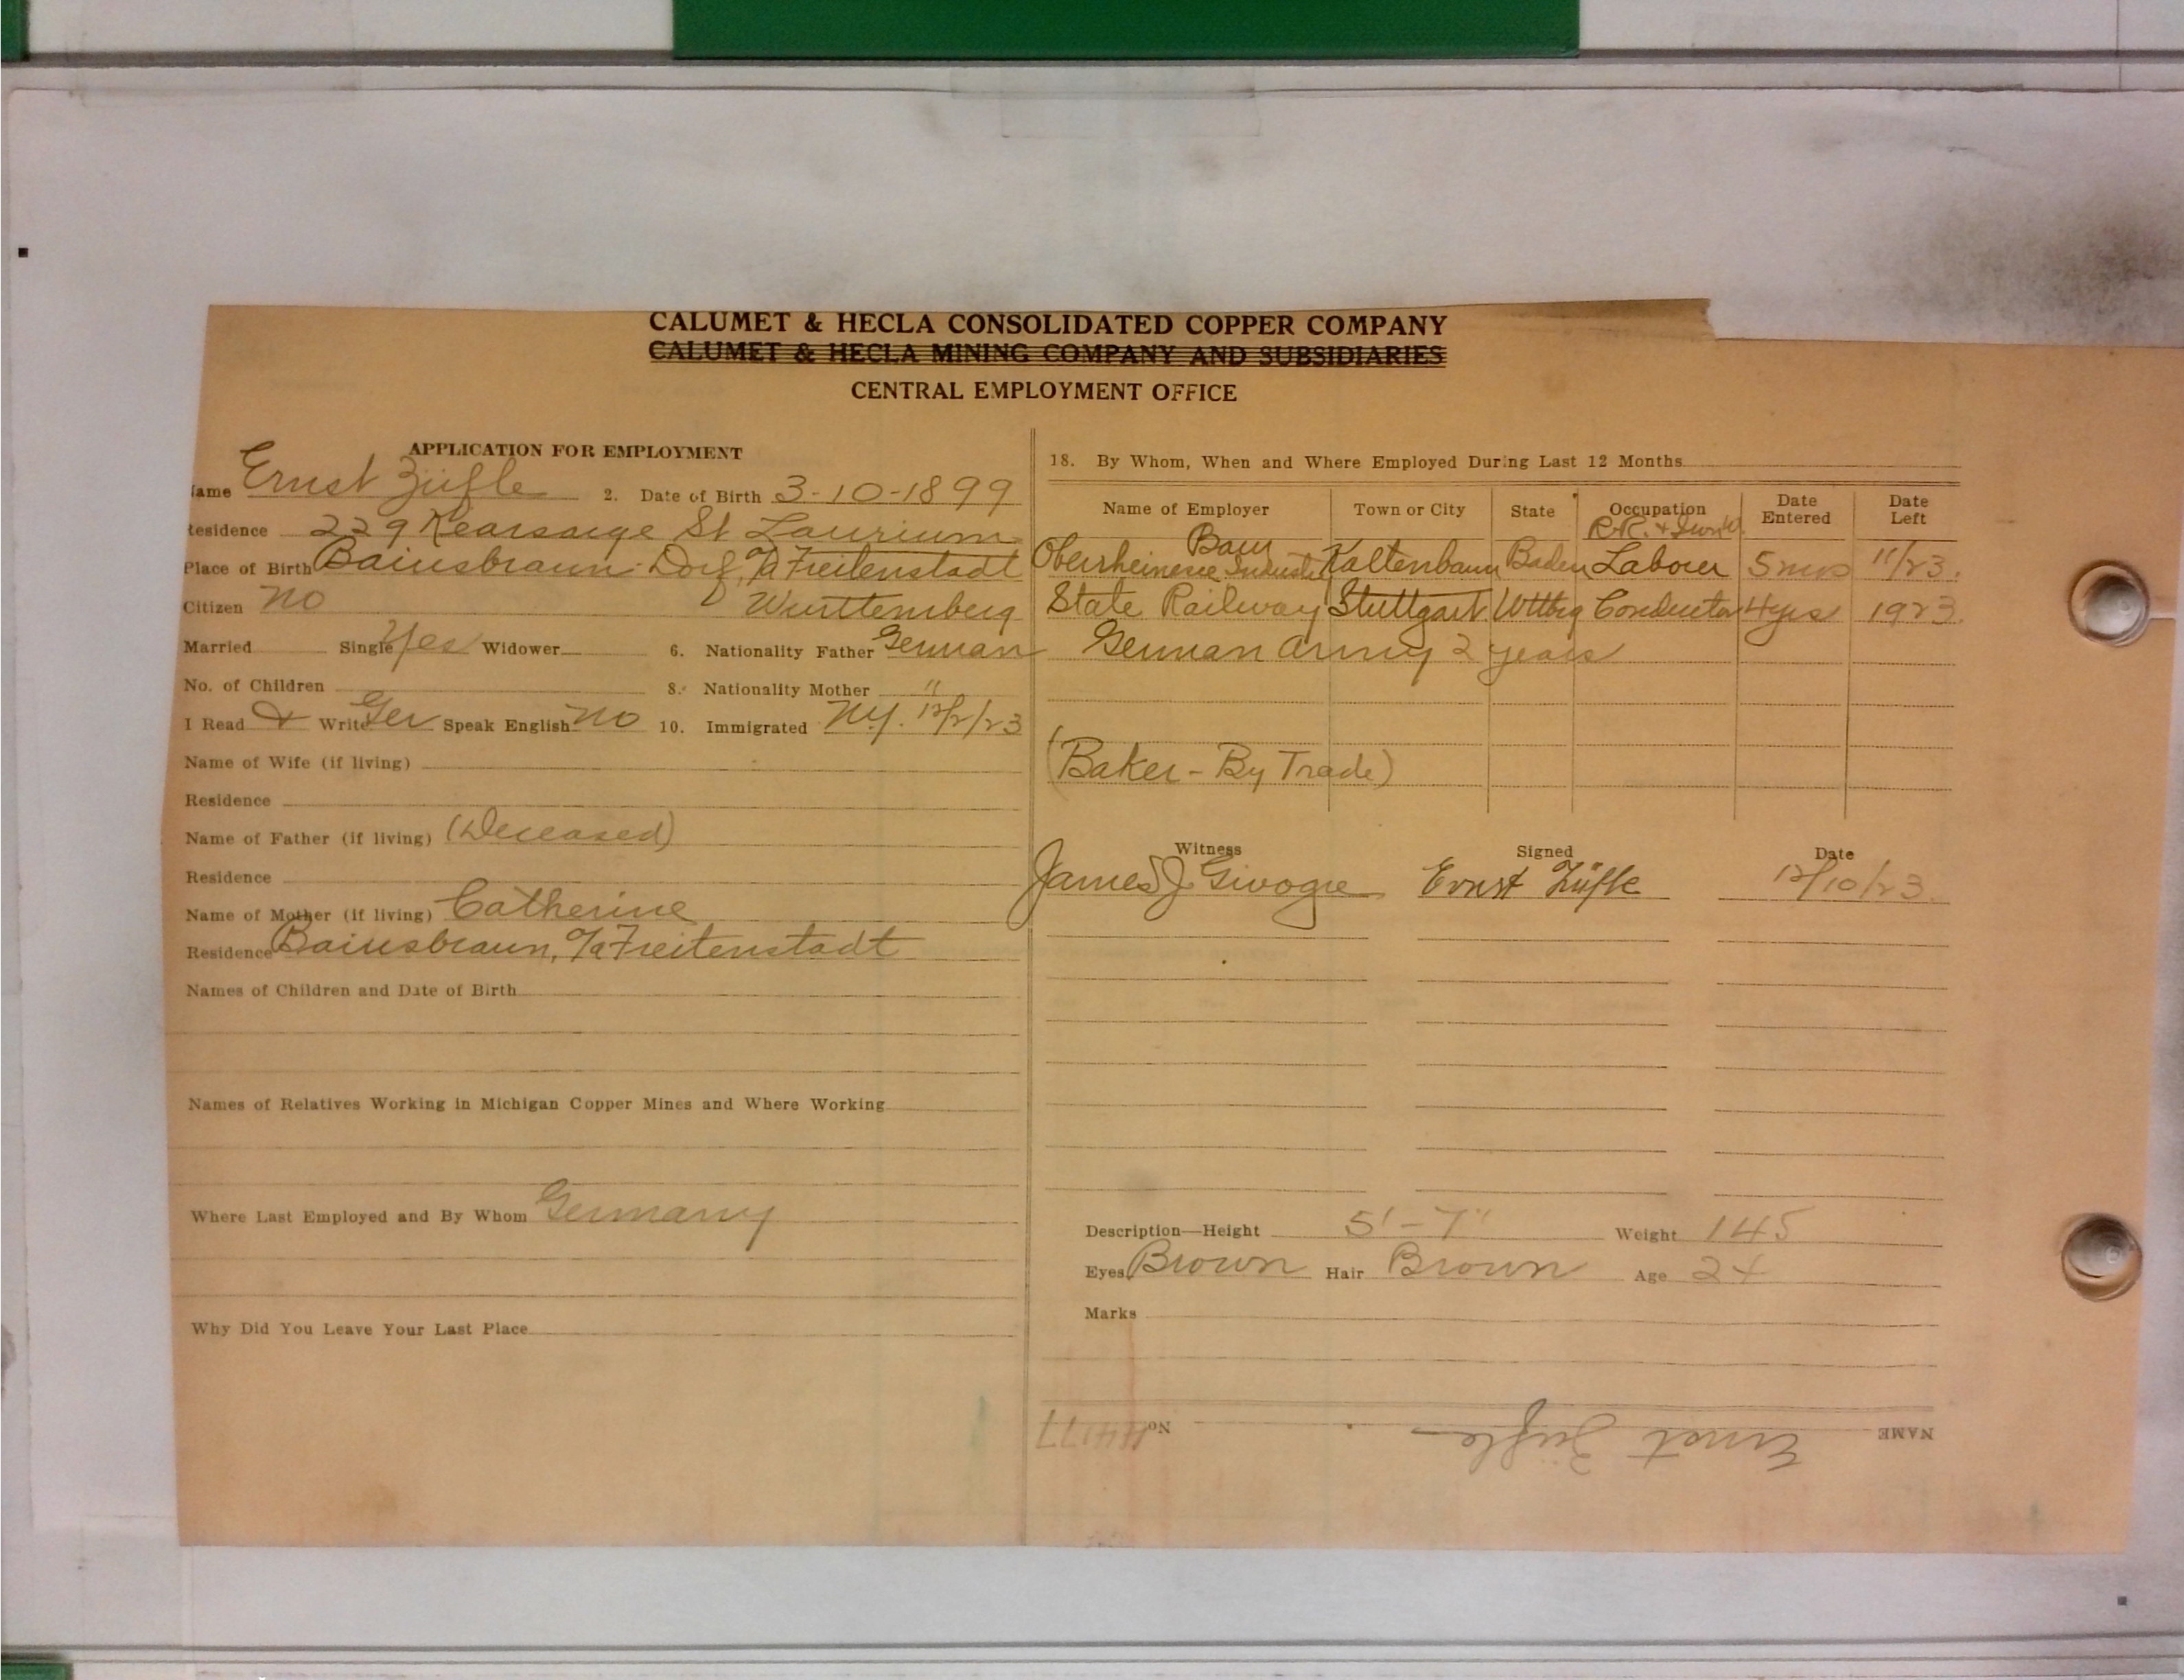 CALUMET & HECLA CONSOLIDATED COPPER COMPANY
CALUMET & HECLA MINING COMPANY AND SUBSIDIARIES
CENTRAL EMPLOYMENT OFFICE
APPLICATION FOR EMPLOYMENT
Name Ernst Züfle 2. Date of Birth 3-10-1899
Residence 229 Kearsarge St Laurium
Place of Birth Baiusbraun Dorf, O/a Freitenstadt
Citizen no Wurttemberg
Married Single Yes Widower 6. Nationality Father German
No. of Children 8. Nationality Mother "
I Read & Write Ger Speak English no 10. Immigrated N.Y. 12/2/23
Name of Wife (if living)
Residence
Name of Father (if living) (Deceased)
Residence
Name of Mother (if living) Catherine
Residence Baiusbraun, O/a Freitenstadt
Names of Children and Date of Birth
Names of Relatives Working in Michigan Copper Mines and Where Working
Where Last Employed and By Whom Germany
Why Did You Leave Your Last Place
18. By Whom, When and Where Employed During Last 12 Months
Name of Employer Town or City State Occupation Date Entered Date Left
Baur R.R. &
Oberrheinesie Industrie Kaltenbaum Baden Laborer 5 mos 11/23.
State Railway Stuttgart Wttbg Conductor 4 yrs 1923.
German Army 2 years
(Baker - By Trade)
Witness Signed Date
James J. Ernst Züfle 12/10/23.
Description—Height 5'-7" Weight 145
Eyes Brown Hair Brown Age 24
Marks
NAME Ernst Züfle No. 44177